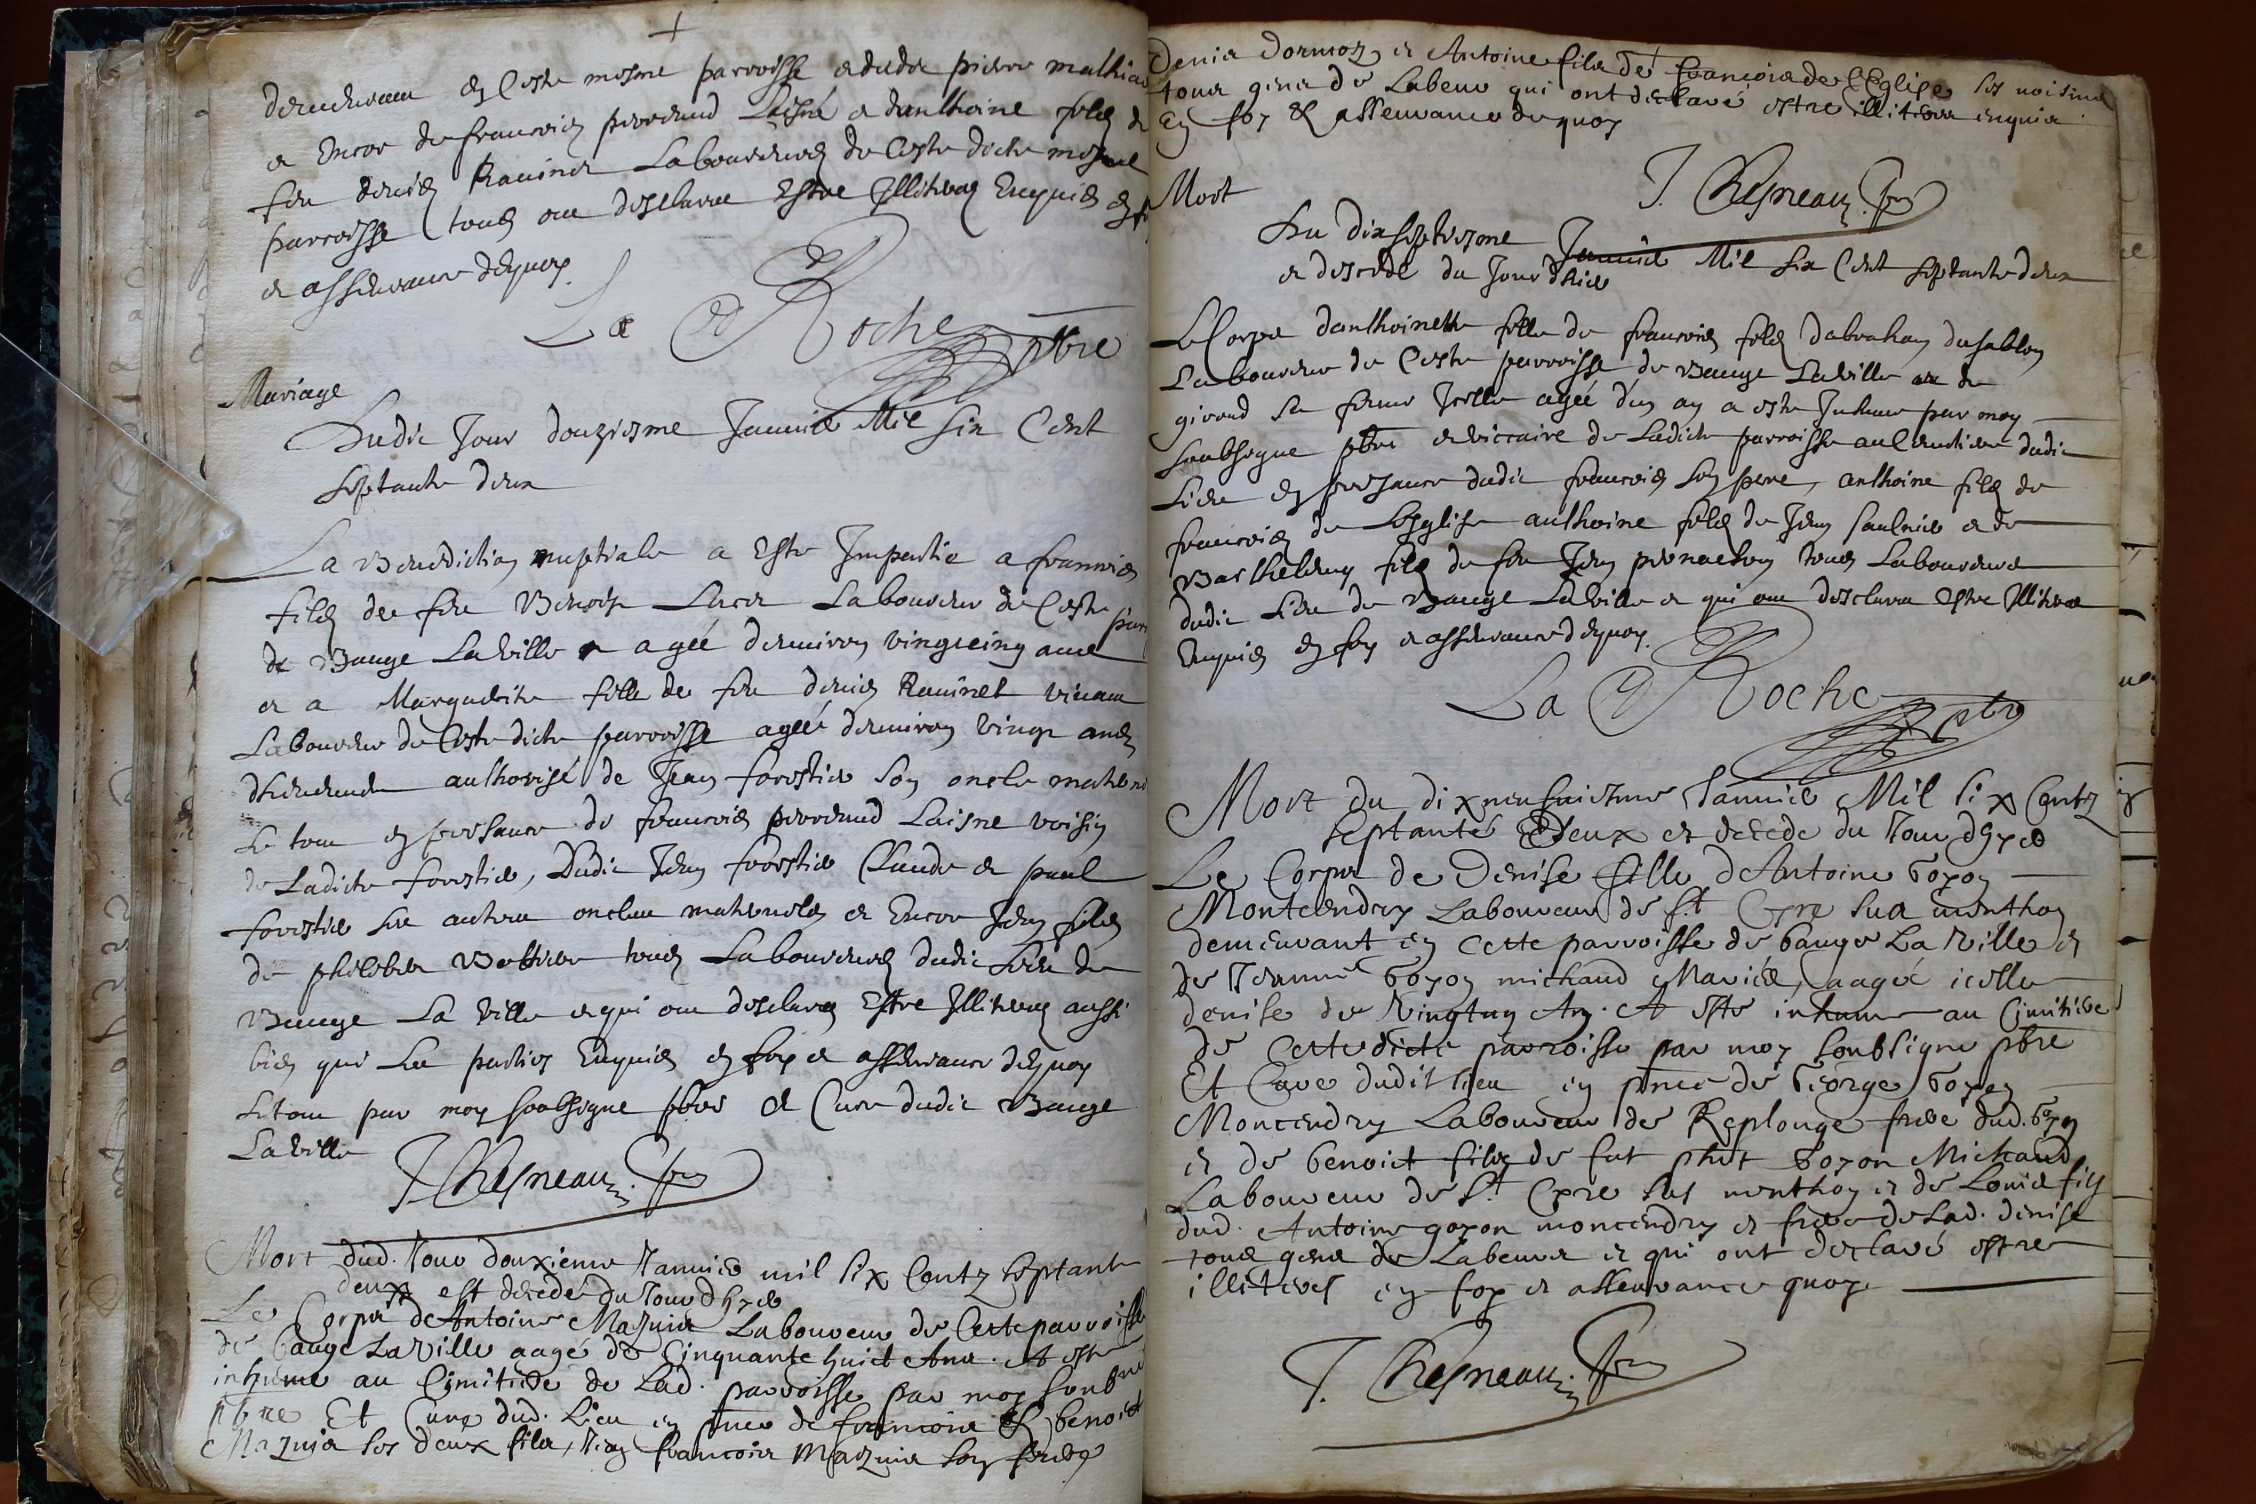 demeurant en Ceste mesme parroisse et dudit pierre mathias
et Encor de francois perreaud Laisné et danthoine filz de
feu denis Ravinet Laboureurs de Ceste dicte mesme
parroisse tous ont desclaré Estre Illiterez Enquis en foy
et asseurance dequoy.
La Roche pbre
Mariage
Dudit Jour douziesme Janvier Mil six Cent
septante deux
La Benediction nuptiale a Esté Impartie a francois
filz de feu Benoist Laboureur de Ceste parr
de Baugé La Ville agéé denviron vingtcinq ans
et a Marguerite fille de feu denis Ravinet vivant
Laboureur de Ceste dicte parroisse agéé denviron vingt ans
authorisé de Jean forestier son oncle maternel
Le tout en presance de francois perreaud Laisne voisin
de Ladicte forestier, Dudit Jean forestier Claude et paul
forestier ses autres oncles maternelz et Encor Jean filz
de philibert tous Laboureurs dudit Lieu de
Bauge La Ville et qui ont desclarez Estre Illiterez aussi
bien que Les parties Enquis en foy et asseurance dequoy
Le tout par moy soubsigne pbre et Cure dudit Bauge
La Ville
J. Chesneau. pbre
Mort dud. Jour douzieme Janvier mil six Centz septante
deux est decedé du Jour dhyer
Le Corps de Antoine Mazuir Laboureur de Cette parroisse
de Bauge La Ville aagé de Cinquante huict Ans. A este
inhumé au Cimitiere de Lad. parroisse par moy soubne
pbre Et Curé dud. Lieu en pnce de francois & benoict
Mazuir ses deux filz, Jean francois Mazuir son frere
Denis dormoz et Antoine filz de francois de L'Eglise ses voisins
tous gens de Labeur qui ont declaré estre illiteres enquis
En foy & asseurance dequoy
J. Chesneau. pbre
Mort
Du dixseptiesme Janvier Mil six Cent septante deux
et descedé du Jour dhier
Le Corps danthoinette fille de francois filz dabraham dusablon
Laboureur de Ceste parroisse de Bauge La Ville et de
giroud sa femme Icelle agéé d'un an a esté Inhumé par moy
soubsigne pbre et viccaire de Ladicte parroisse au Cemetiere dudit
Lieu en presance dudit francois son pere, anthoine filz de
francois de Lesglise anthoine filz de Jean saulnier et de
Barthelemy filz de feu Jean tous Laboureurs
dudit Lieu de Bauge La Ville et qui ont desclaré Estre Illiterez
Enquis en foy et asseurance dequoy.
La Roche pbre
Mort du dixneufviesme Janvier Mil six Centz
septante Deux et decede du Jour dhyer
Le Corps de Denise fille d'Antoine Goyon
Montcendry Laboureur de St Cyre sus menthon
demeurant en cette parroisse de bauge La Ville et
de Jeanne Goyon michaud Mariés, aagée icelle
denise de vingtun An. A esté inhume au Cimitiere
de Cette dicte parroisse par moy soubsigne pbre
Et Cure dudit lieu en pnce de George Goyon
Moncendry Laboureur de Replonge frere dud. Goyon
et de benoict filz de fut phet Goyon Michaud
Laboureur de St Cyre sus menthon et de Louis filz
dud. Antoine goyon moncendry et frere de Lad. denise
tous gens de Labeur et qui ont declaré estre
illiteres en foy et asseurance quoy.
J. Chesneau. pbre